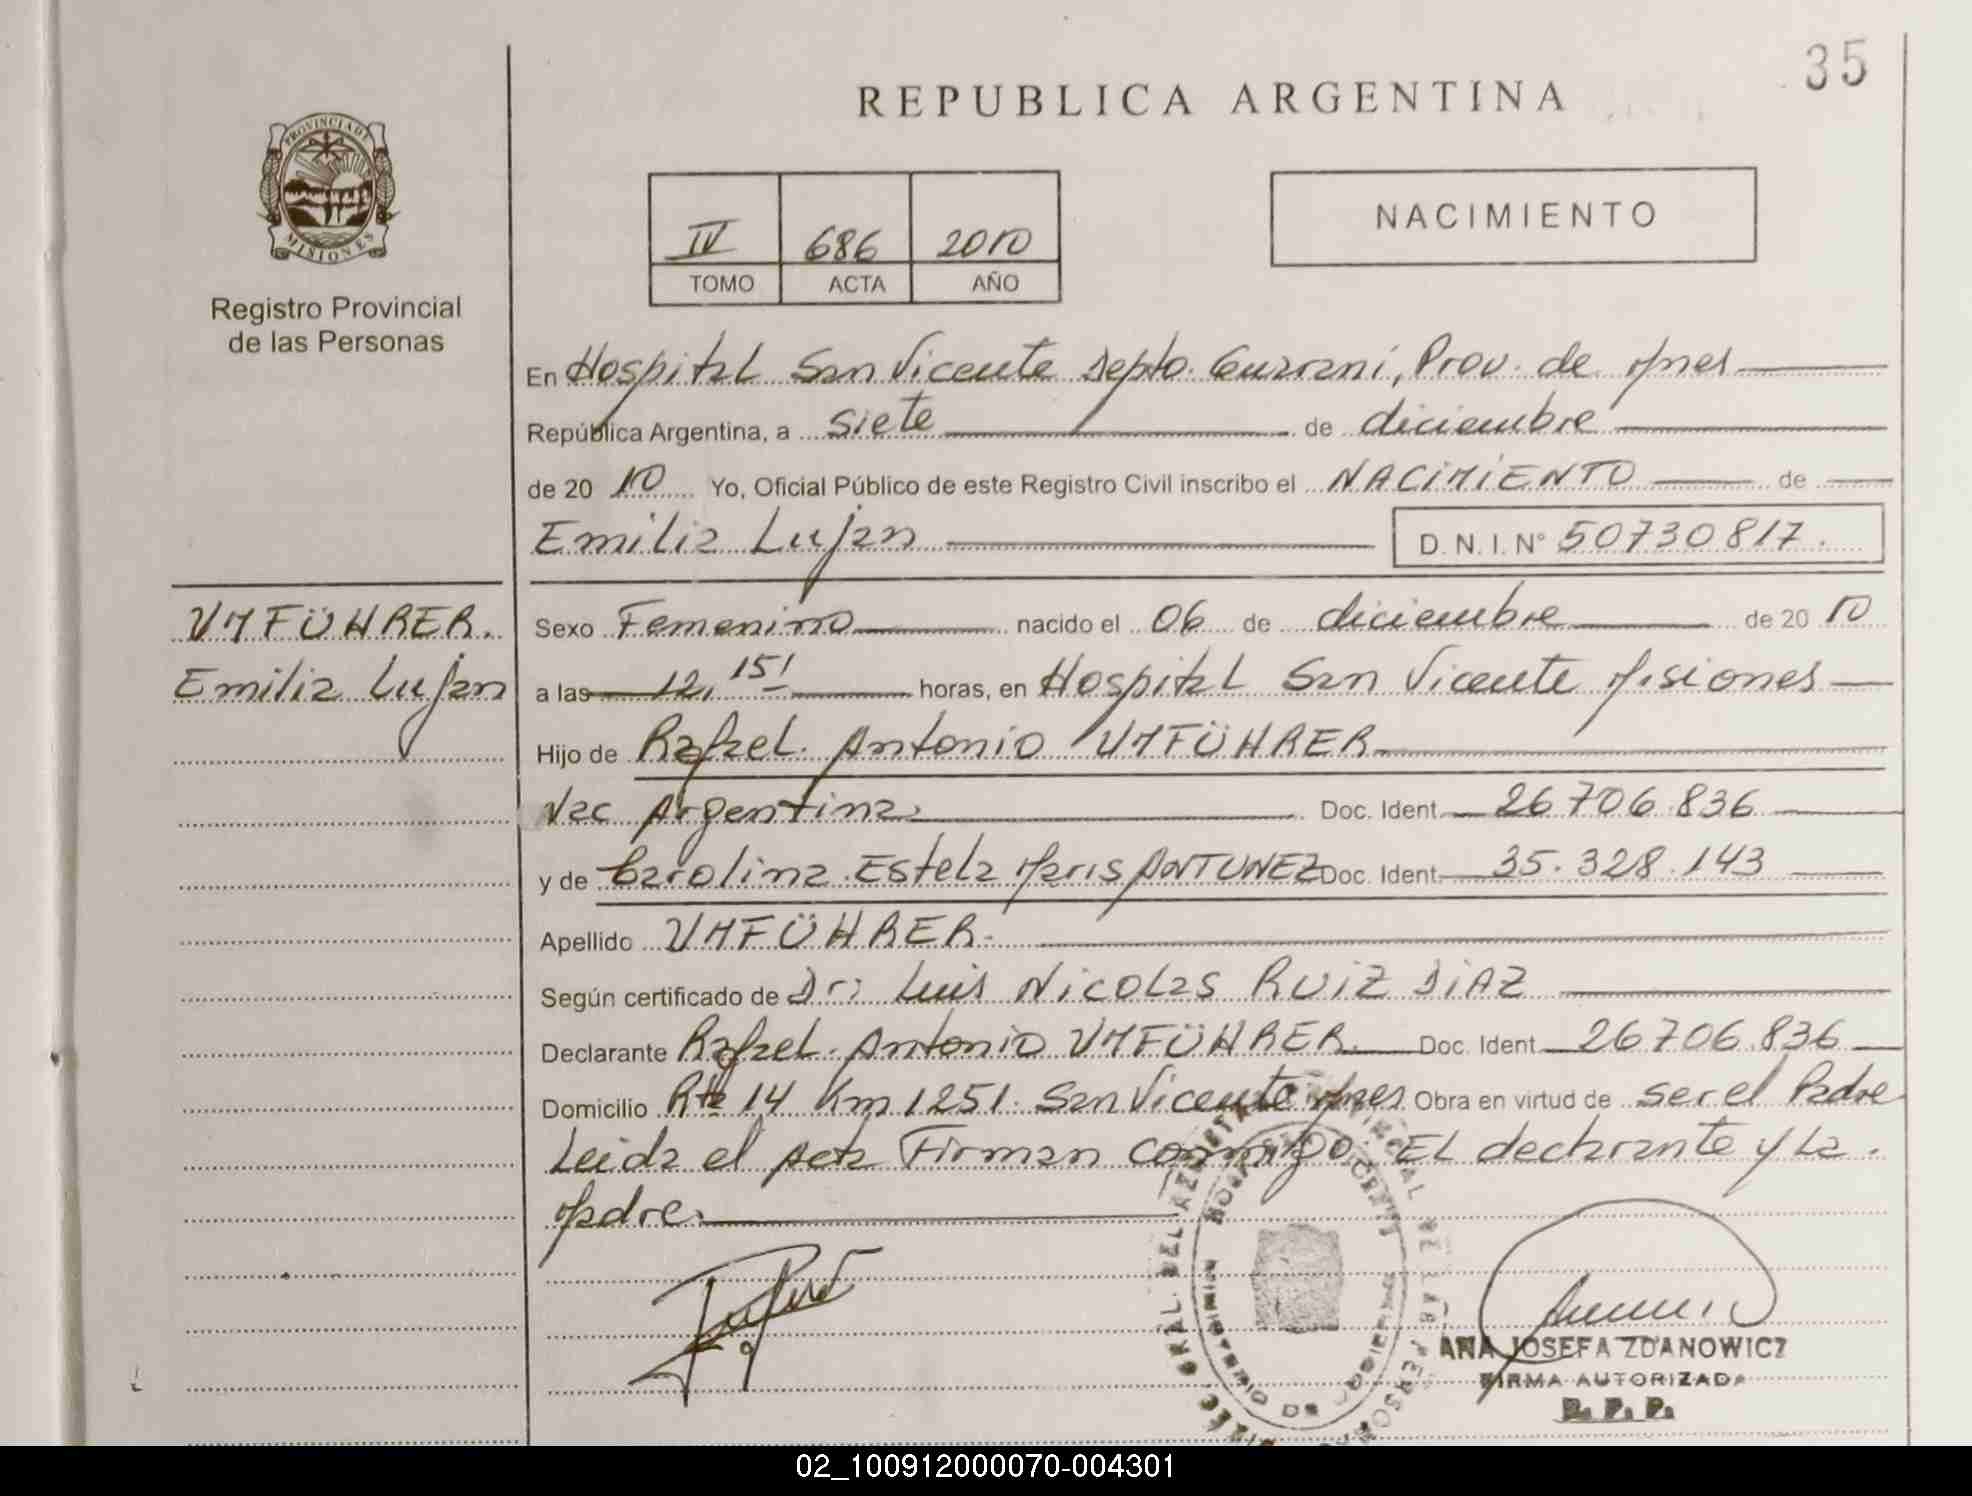 35
REPUBLICA ARGENTINA
PROVINCIA DE
MISIONES
Registro Provincial
de las Personas
IV 686 2010
TOMO ACTA AÑO
NACIMIENTO
En Hospital San Vicente Depto. Guaraní, Prov. de Mnes
República Argentina, a siete de diciembre
de 2010 Yo, Oficial Público de este Registro Civil inscribo el NACIMIENTO de
Emilia Lujan D.N.I.N° 50730817.
VMFÜHRER.
Emilia Lujan
Sexo Femenino nacido el 06 de diciembre de 2010
a las 12,15' horas, en Hospital San Vicente Misiones
Hijo de Rafael Antonio VMFÜHRER
Nac Argentina Doc. Ident. 26706.836
y de Carolina Estela Maris ANTUNEZ Doc. Ident. 35.328.143
Apellido VMFÜHRER
Según certificado de Dr: Luis Nicolas RUIZ DIAZ
Declarante Rafael Antonio VMFÜHRER. Doc. Ident 26706.836
Domicilio Rta 14 Km 1251. San Vicente Mnes Obra en virtud de ser el Padre
Leida el Acta Firman conmigo. EL declarante y La.
Madre.
ANA JOSEFA ZDANOWICZ
FIRMA AUTORIZADA
R. P. P.
02_100912000070-004301